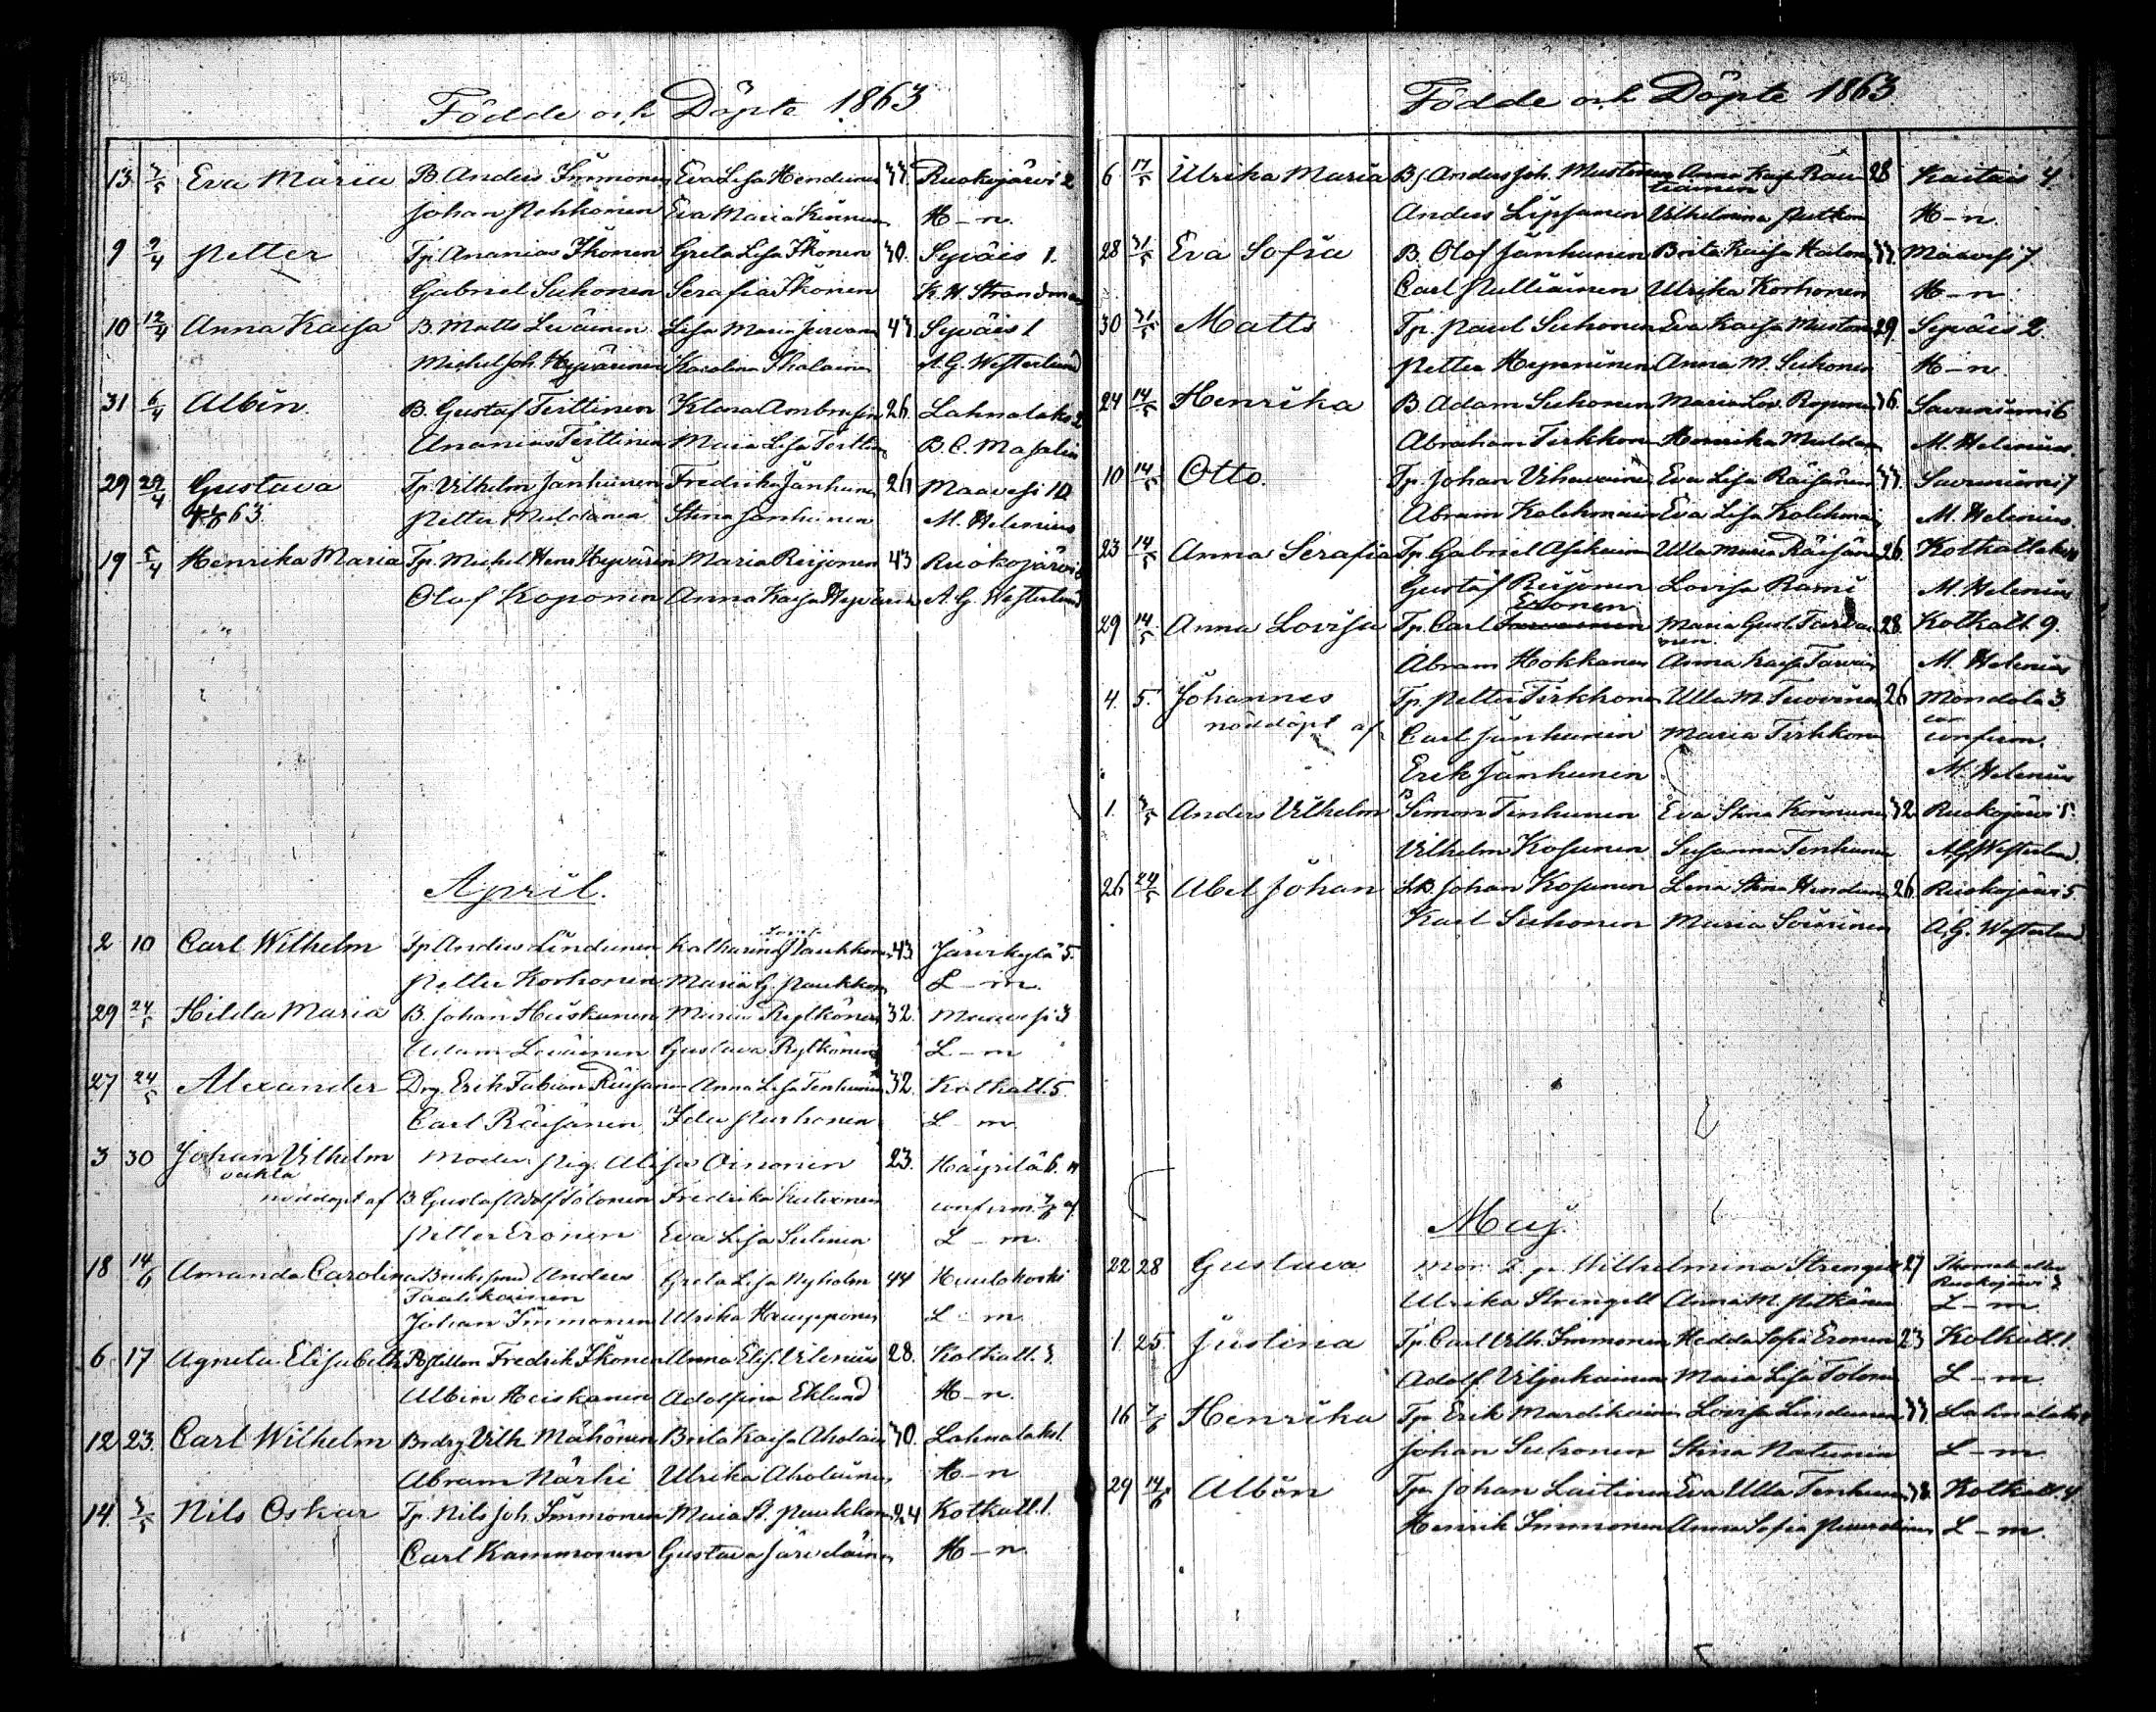 Födde och Döpte 1863
13 3/5 Eva Maria B. Anders Immonen Eva Lisa Hendunen 33. Ruokojärvi 2
Johan Pehkonen Eva Maria Kinnunen H-n.
9 9/4 Petter Tp. Ananias Ikonen Greta Lisa Ikonen 30. Syväis 1.
Gabriel Suhonen Serafia Ikonen K. H. Strandman
10 12/4 Anna Kaisa B. Matts Leväinen Lisa Maria 43 Syväis 1
Michel Joh. Hyvärinen Karolina A. G. Westerlund
31 6/4 Albin. B. Gustaf Terttinen Klara 26. Lahnalaks 2
Ananias Terttinen Maria Lisa Terttin B. C. Masalin
29 29/4 Gustava Tp. Vilhelm Jänhunen Fredrika Jänhunen 26 Maavesi 10
63. Petter Muldanen Stina Janhunen M. Helenius
19 5/4 Henrika Maria Tp. Michel Henr Hyvärin Maria Reijonen 43 Ruokojärvi
Olof Koponen Anna Kaisa Hyvärin A. G. Westerlund
April.
2 10 Carl Wilhelm Tp. Anders Lindunen Katharina Lovisa Paukkonen 43 Järvikylä 5.
Petter Korhonen Maria G. Paukkon L-m.
29 24/5 Hilda Maria B. Johan Heiskanen Maria Rytkönen 32. Maavesi 3
Adam Leväinen Gustava Rytkönen L-m
27 24/5 Alexander Drg. Erik Fabian Räisänen Anna Lisa Tenhunen 32. Kotkatl. 5.
Carl Räisänen Ida Purhonen L-m.
3 30 Johan Vilhelm Moder: Pig. Alisa Oinonen 23. Häyrilä 6.
oäkta
nöddöpt af B. Gustaf Adolf Tolonen Fredrika confirm. 7/6 af
Petter Eronen Eva Lisa Sutinen L-m.
18 14/6 Amanda Carolina Anders Greta Lisa Nyholm 44 Huutokoski
Taalikainen
Johan Immonen Ulrika Haupponen L-m.
6 17 Agneta Elisabeth Postillon Fredrik Ikonen Anna Elis. Vilenius 28. Kotkatl. 3.
Albin Heiskanen Adolfina Eklund H-n.
12 23. Carl Wilhelm Brdrg. Vilh. Mähönen Brita Kaisa Aholain 30. Lahnalaks 1.
Abram Närhi Ulrika Aholainen H-n
14. 3/5 Nils Oskar Tp. Nils Joh. Immonen Maria St. Paukkon 24 Kotkatl. 1.
Carl Kammonen Gustava Järveläinen H-n.
Födde och Döpte 1863.
6 17/5 Ulrika Maria Bs. Anders Joh. Mustonen Anna Kaisa Rau- 28 Kaitais 4.
tiainen
Anders Lipsanen Vilhelmina Putkon H-n.
28 31/5 Eva Sofia B. Olof Jänhunen Brita Kaisa Halon 33. Maavesi 7.
Carl Pulliäinen Ulrika Korhonen H-n.
30 31/5 Matts Tp. Paul Suhonen Eva Kaisa Muston 29. Syväis 2.
Petter Hynninen Anna M. Suhonen H-n.
24 14/5 Henrika B. Adam Suhonen Maria Lov. Roponen 36. Savuniemi 6
Abraham Tirkkon Henrika Muldan M. Helenius.
10 14/5 Otto. Tp. Johan Vihavainen Eva Lisa Räisänen 33. Savuniemi 7
Abram Kolehmain Eva Lisa Kolehmai M. Helenius.
23 14/5 Anna Serafia Tp. Gabriel Asikain Ulla Maria Räisän 26. Kotkatlaks
Gustaf Reijonen Lovisa Rami M. Helenius
29 14/5 Anna Lovisa Tp. Carl Eronen Maria Gust. Tarvai- 28. Kotkatl. 9.
nen
Abram Hokkanen Anna Kaisa Tarvain M. Helenius
4. 5. Johannes Tp. Petter Tirkkonen Ulla M. Tuovinen 26 Mondola 3
nöddöpt af Carl Jänhunen Maria Tirkkonen confirm.
Erik Jämhunen M. Helenius
1. 3/5 Anders Vilhelm B Simon Tenhunen Eva Stina Kinnunen 32. Ruokojärvi 5.
Vilhelm Kosunen Susanna Tenhunen AG Westerlund.
26 24/5 Abel Johan Johan Kosunen Lena Stina Hendun 26. Ruokojärvi 5.
Karl Suhonen Maria Soininen A. G. Westerlund
Maj.
22 28 Gustava Mor: Wilhelmina Strengell 27 Ruokojärvi 2
Ulrika Strengell Anna M. Pitkänen L-m
1. 25. Justina Tp. Carl Vilh. Immonen Hedda Sofia Eronen 23 Kotkatl. 1.
Adolf Viljakainen Maria Lisa Tolonen L-m.
16 7/6 Henrika Tp. Erik Mardikainen Lovisa Lindunen 33. Lahnalaks
Johan Suhonen Stina Natunen L-m.
29 14/6 Albin Tp. Johan Laitinen Eva Ulla Tenhunen 38. Kotkatl. 4
Henrik Immonen Anna Sofia L-m.